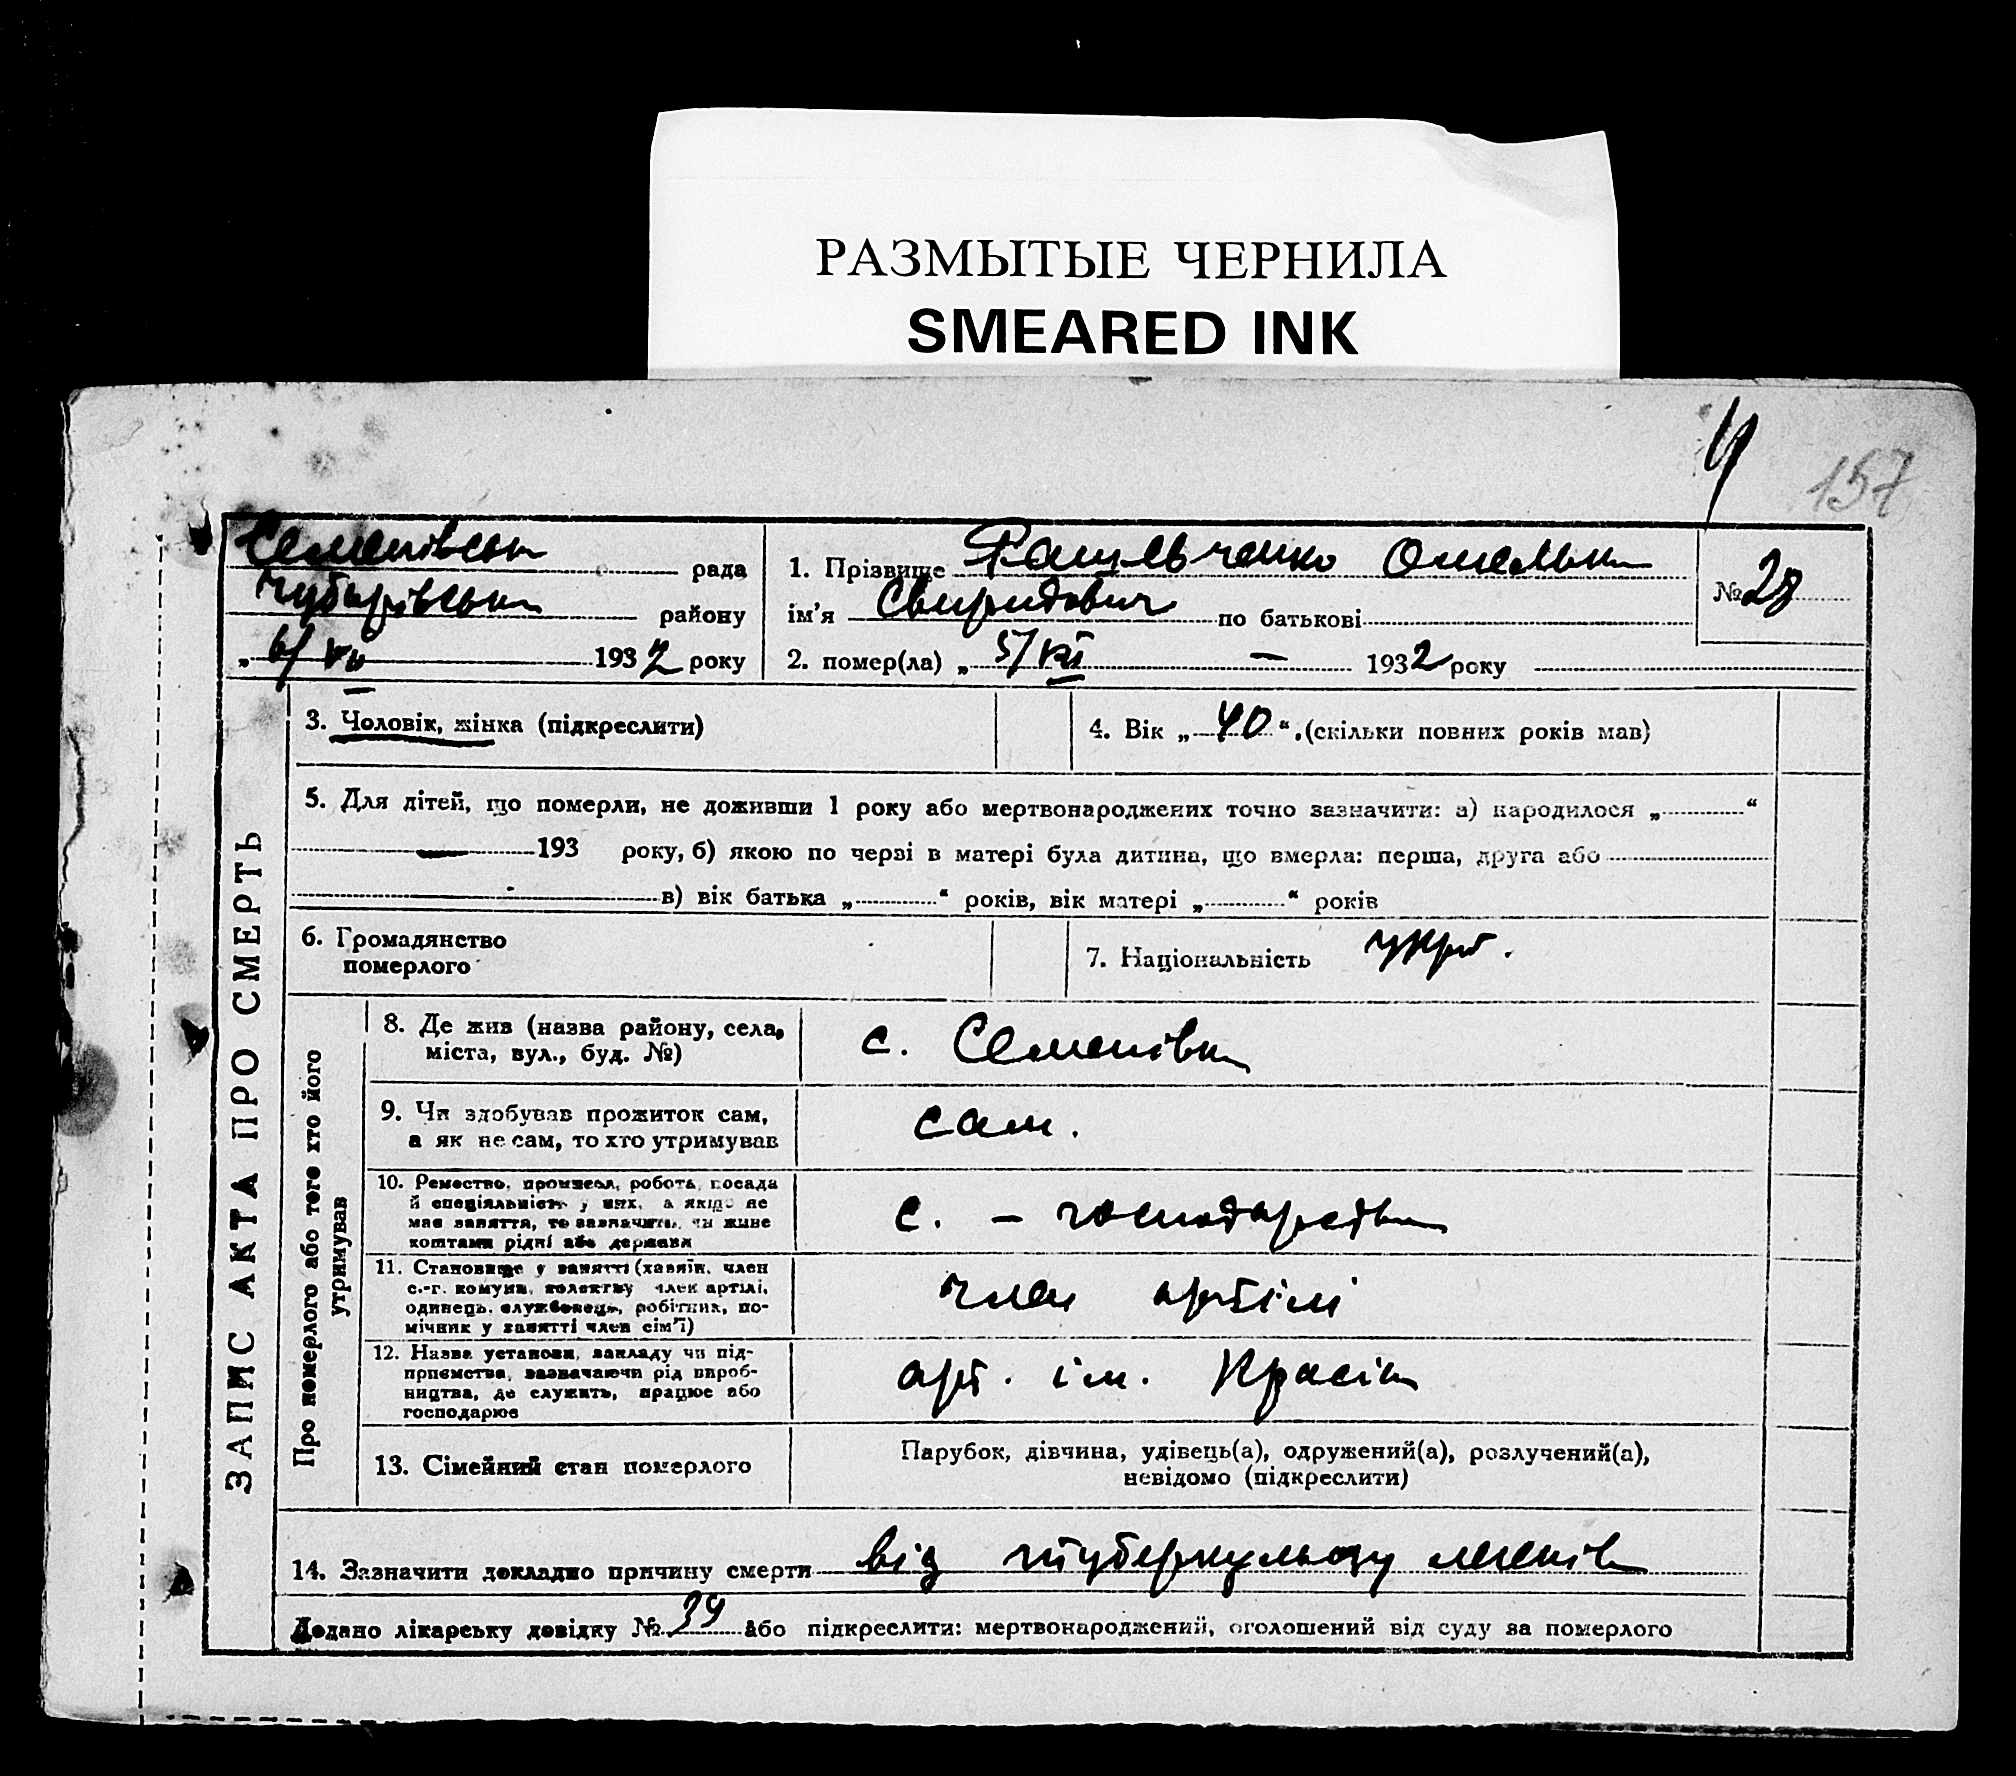 РАЗМЫТЫЕ ЧЕРНИЛА
SMEARED INK
157
Семенівська рада
Чубарівська району
„ 6/VII 1932 року
1. Прізвище Омелько
ім’я Свиридович по батькові
2. помер(ла) „ 5/VII — 1932 року
№ 28
ЗАПИС АКТА ПРО СМЕРТЬ
3. Чоловік, жінка (підкреслити)
4. Вік „ 40 “ (скільки повних років мав)
5. Для дітей, що померли, не доживши 1 року або мертвонароджених точно зазначити: а) народилося „ “
— 193 року, б) якою по черзі в матері була дитина, що вмерла: перша, друга або
в) вік батька „ “ років, вік матері „ “ років
6. Громадянство
померлого
7. Національність укр.
Про померлого або того хто його
утримував
8. Де жив (назва району, села,
міста, вул., буд. №)
с. Семенівка
9. Чи здобував прожиток сам,
а як не сам, то хто утримував
сам.
10. Ремество, промисел, робота, посада
й спеціяльність у них, а якщо не
має заняття, то зазначити, чи живе
коштами рідні або держави
с. – господарства
11. Становище у занятті (хазяїн, член
с.-г. комуни, колективу член артілі,
одинець, службовець, робітник, по-
мічник у занятті член сім’ї)
член артілі
12. Назва установи, закладу чи під-
приємства, зазначаючи рід вироб-
ництва, де служить, працює або
господарює
арт. ім. Красіна
13. Сімейний стан померлого
Парубок, дівчина, удівець(а), одружений(а), розлучений(а),
невідомо (підкреслити)
14. Зазначити докладно причину смерти від туберкульозу легенів
Додано лікарську довідку № 39 або підкреслити: мертвонароджений, оголошений від суду за померлого